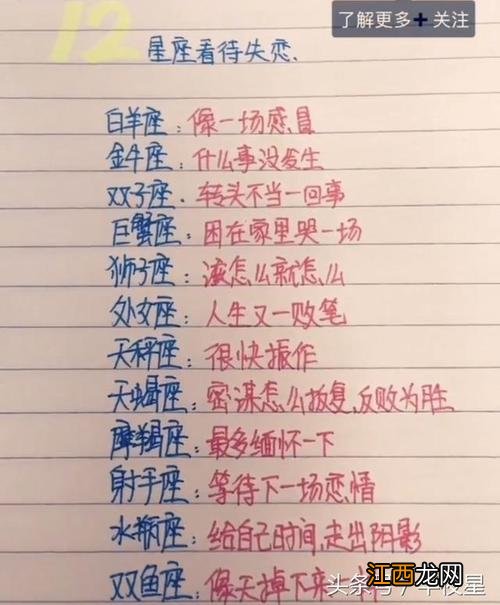 了解更多+ 关注
12
星座看待失恋.
白羊座：像一场感冒
金牛座：什么事没发生
双子座．转头不当一回事
巨蟹座：困在家里哭一场
狮子座：该怎么就怎么
处女座：人生又一败笔
天秤座：很快振作
天蝎座：密谋怎么报复,反败为胜
摩羯座：最多缅怀一下
射手座：等待下一场恋情
水瓶座：给自己时间,走出阴影
双鱼座：像天掉下来
头条号／午夜星
江西龙网